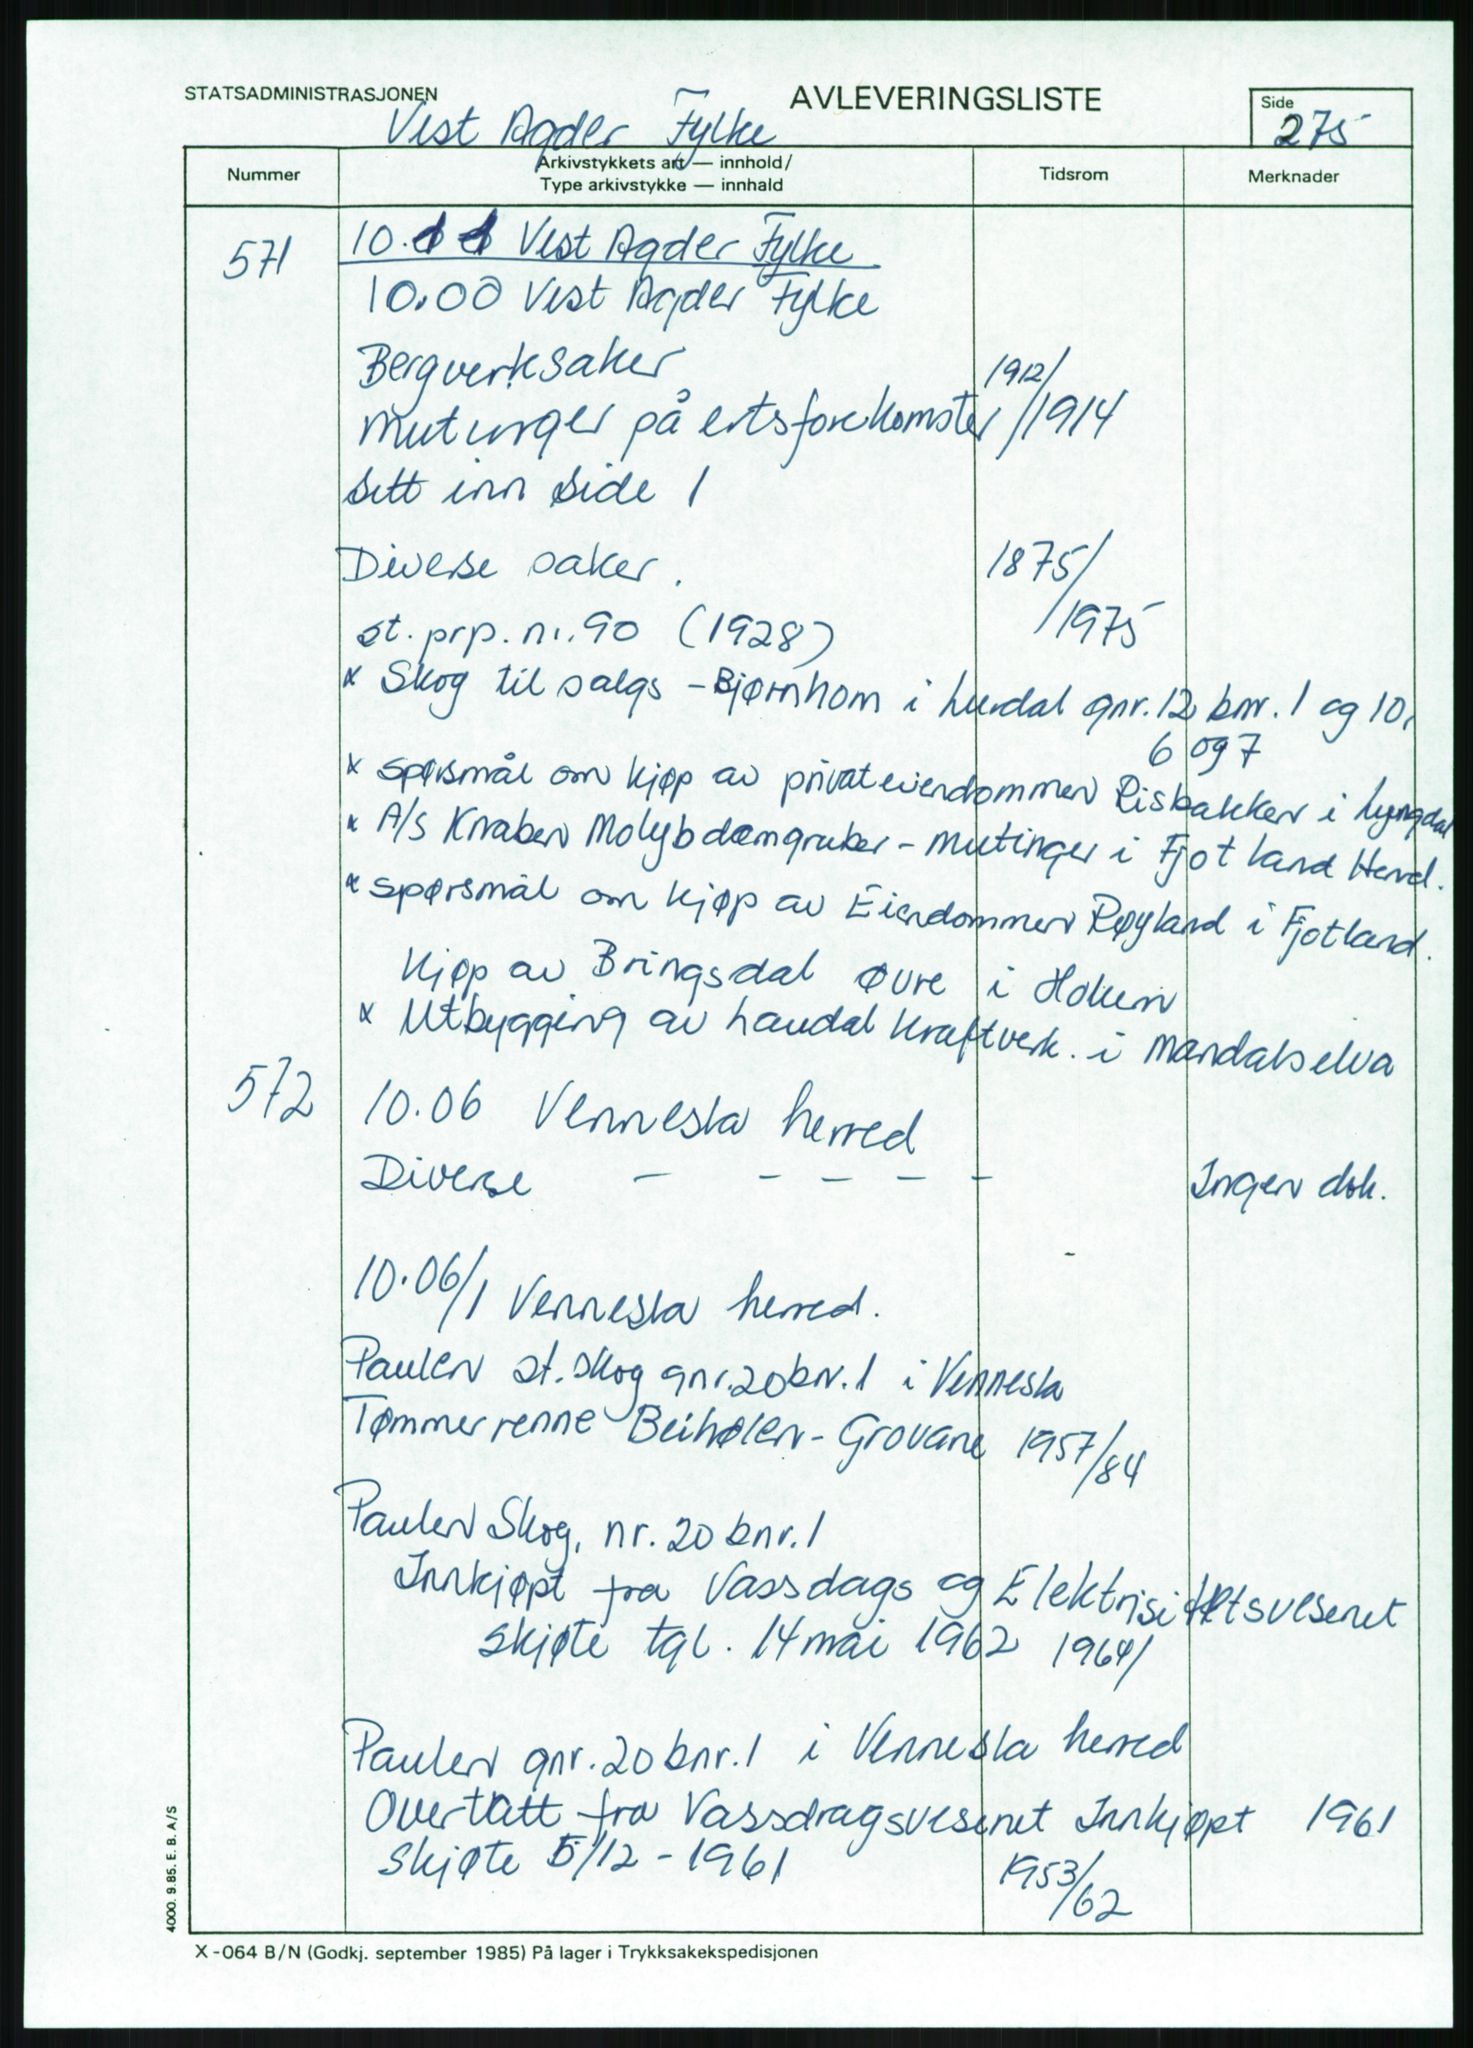 STATSADMINISTRASJONEN
AVLEVERINGSLISTE
Side
275
Vest Agder Fylke
Nummer
Arkivstykkets art — innhold/
Type arkivstykke — innhald
Tidsrom
Merknader
571
10. Vest Agder Fylke
10.00 Vest Agder Fylke
Bergverksaker 1912/
Mutinger på ertsforekomster /1914
Sett inn side 1
Diverse saker. 1875/
/1975
st. prp. nr. 90 (1928)
x Skog til salgs - Bjørnhom i Lurdal gnr. 12 bnr. 1 og 10,
6 og 7
x spørsmål om kjøp av privateiendommen Risbakken i Lyngdal
x A/S Knaben Molybdæmgruber - mutinger i Fjotland Herred.
x spørsmål om kjøp av Eiendommen Røyland i Fjotland.
Kjøp av Bringsdal øvre i Holum
x Utbygging av Laudal Kraftverk. i Mandalselva
572
10.06 Vennesla herred
Diverse - - - - - Ingen dok.
10.06/1 Vennesla herred.
Paulen st. skog gnr. 20 bnr. 1 i Vennesla
Tømmerrenne Beihølen - Grovane 1957/84
Paulen Skog, nr. 20 bnr. 1
Innkjøpt fra Vassdags og Elektrisitetsvesenet
skjøte tgl. 14 mai 1962 1964/
Paulen gnr. 20 bnr. 1 i Vennesla herred
Overtatt fra Vassdragsvesenet Innkjøpt 1961
Skjøte 5/12 - 1961 1953/62
4000. 9.85. E. B. A/S
X-064 B/N (Godkj. september 1985) På lager i Trykksakekspedisjonen